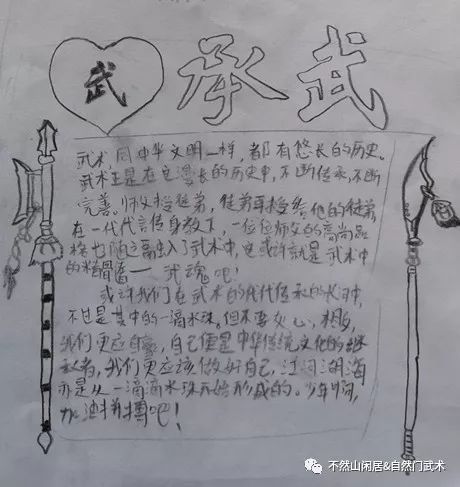 武
承武
武术同中华文明一样，都有悠长的历史。
武术正是在它漫长的历史中，不断传承，不断
完善。师父授徒弟，徒弟再授给他的徒弟，
在一代代言传身教下，一位位师父的高尚品
格也随之融入了武术中，这或许就是武术中
的精髓——武魂吧！
或许我们在武术的代代传承的长河中，
不过是其中的一滴水珠。但不要灰心，相反，
我们更应自豪，自己便是中华传统文化的继
承者，我们更应该做好自己，江河湖海
亦是从一滴滴水珠开始形成的。少年们，
加油拼搏吧！
不然山闲居&自然门武术